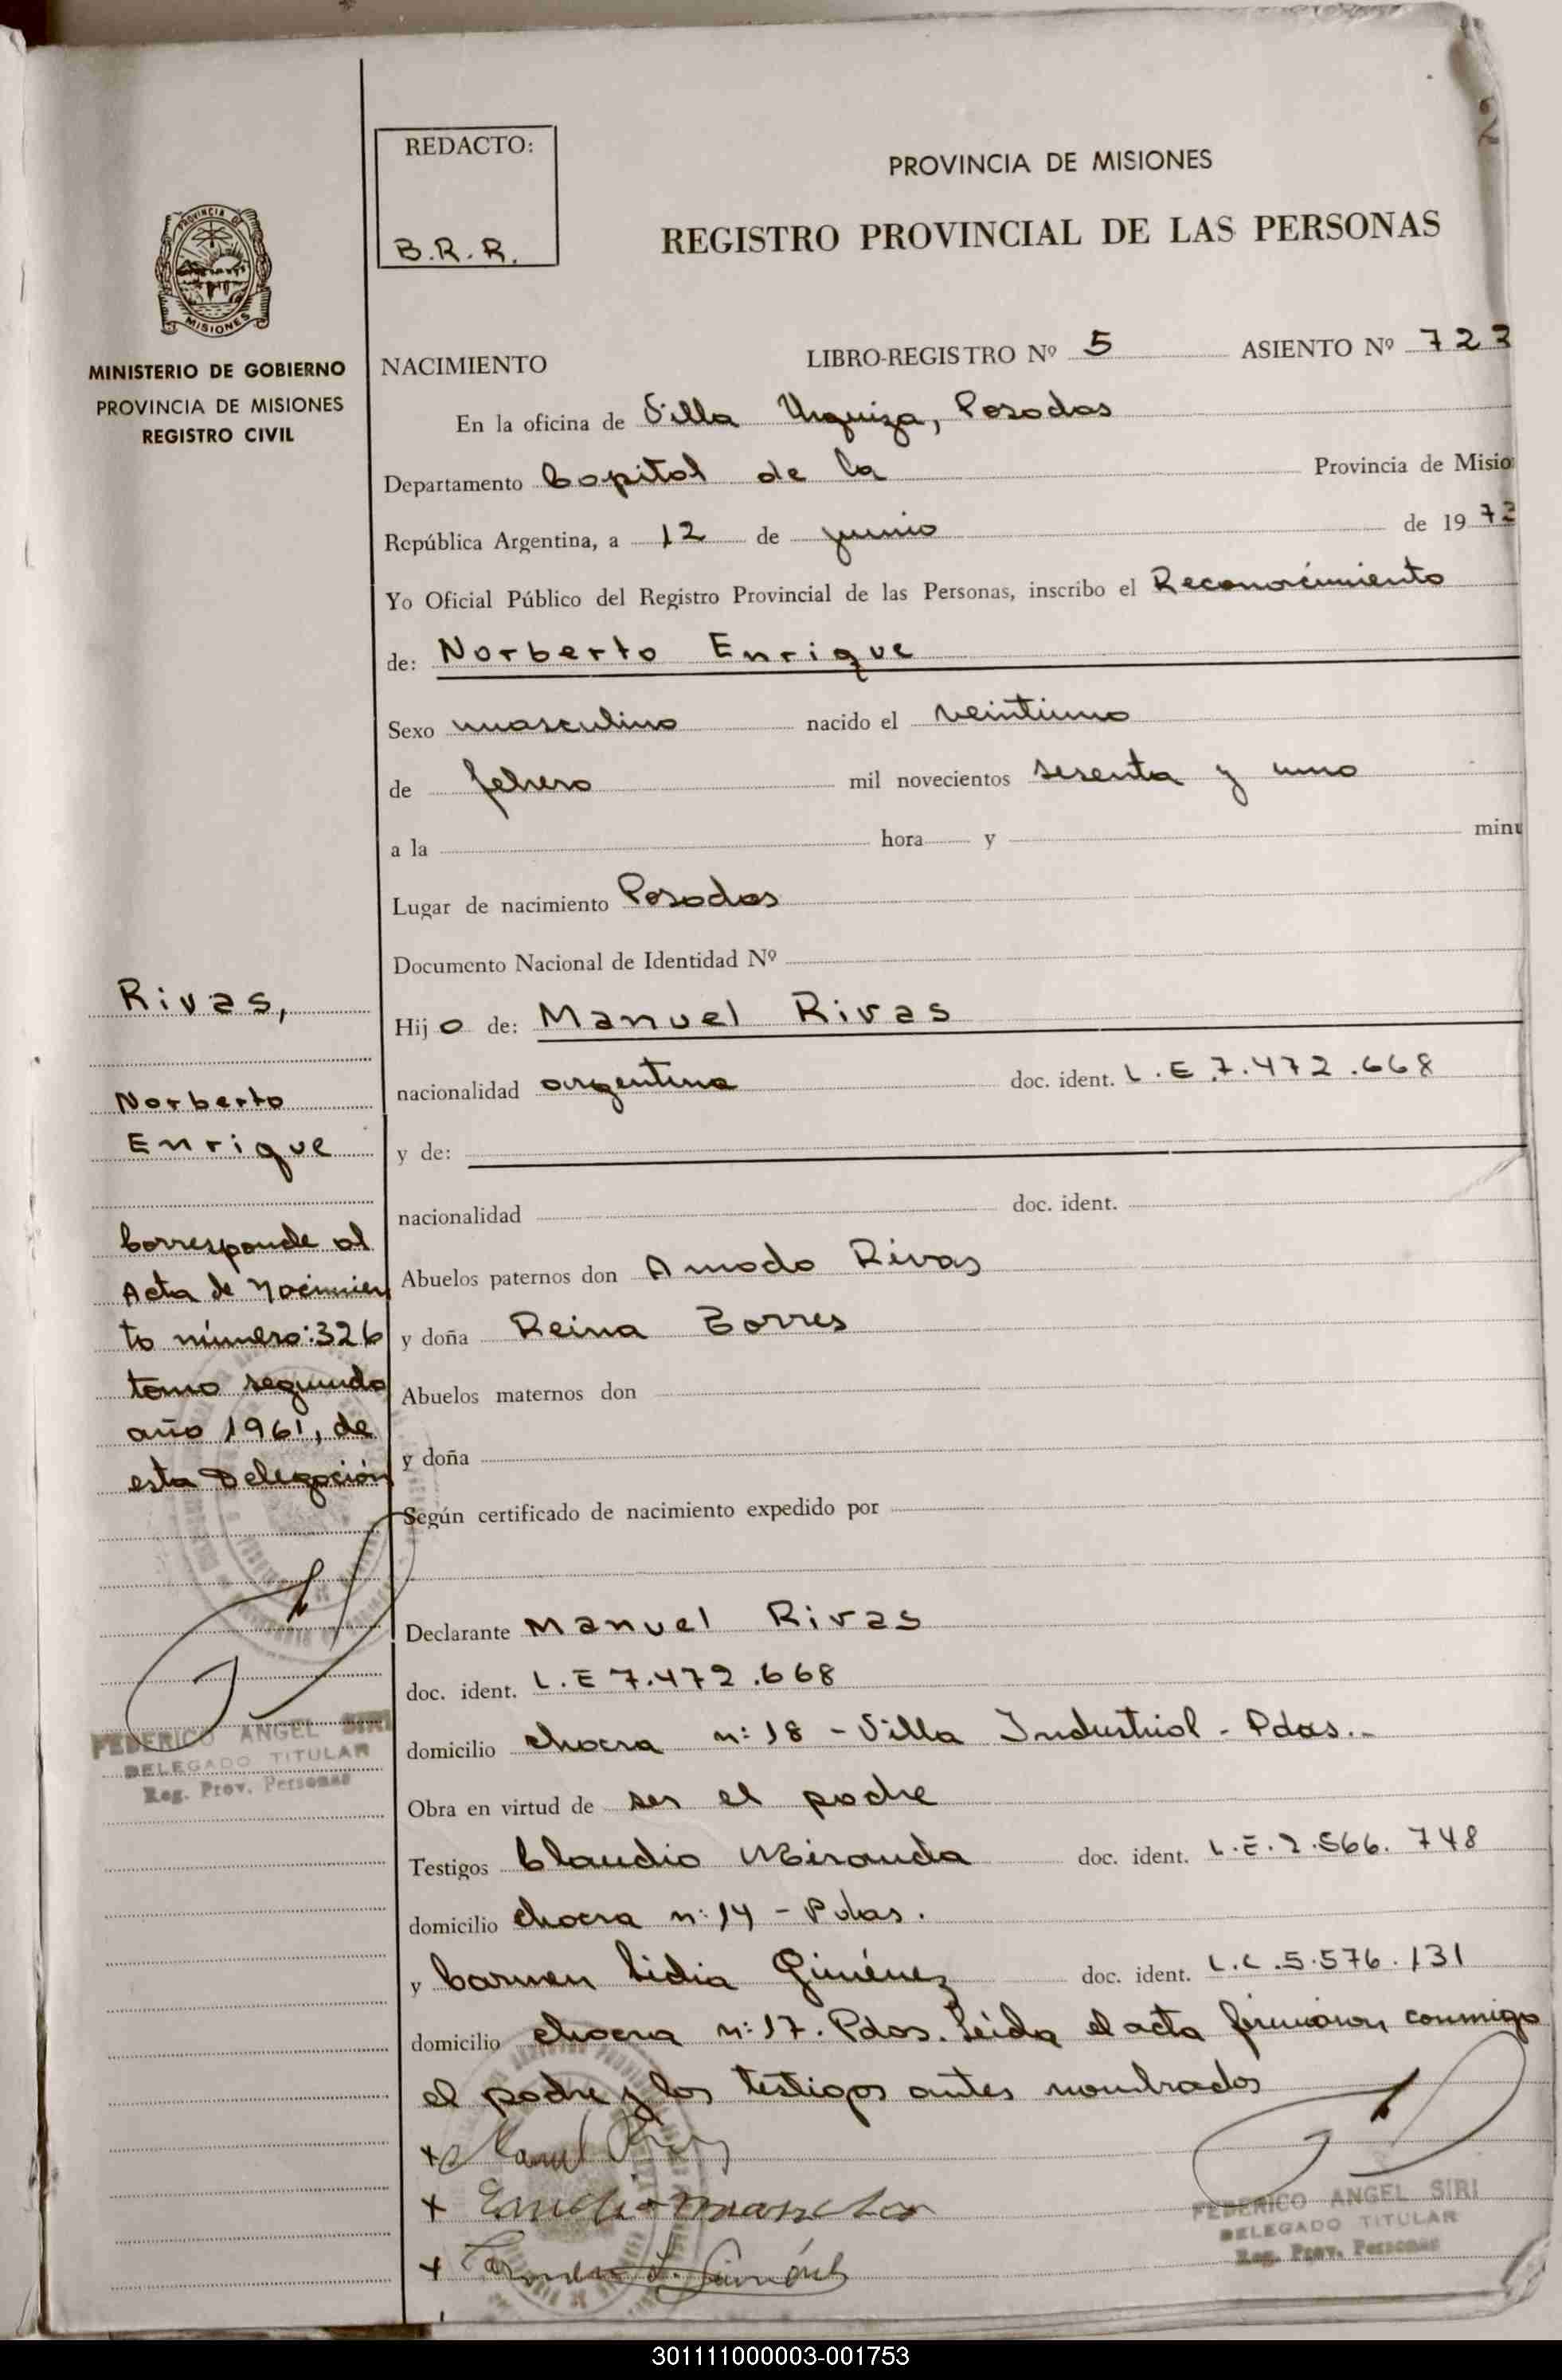 2
REDACTO:
B.R.R.
PROVINCIA DE MISIONES
REGISTRO PROVINCIAL DE LAS PERSONAS
PROVINCIA DE
MISIONES
MINISTERIO DE GOBIERNO
PROVINCIA DE MISIONES
REGISTRO CIVIL
NACIMIENTO LIBRO-REGISTRO Nº 5 ASIENTO Nº 723
En la oficina de Villa Urquiza, Posadas
Departamento Capital de la Provincia de Misio
República Argentina, a 12 de junio de 1973
Yo Oficial Público del Registro Provincial de las Personas, inscribo el Reconocimiento
de: Norberto Enrique
Sexo masculino nacido el veintiuno
de febrero mil novecientos sesenta y uno
a la hora y minu
Lugar de nacimiento Posadas
Documento Nacional de Identidad Nº
Hijo de: Manuel Rivas
nacionalidad argentina doc. ident. L.E.7.472.668
y de:
nacionalidad doc. ident.
Abuelos paternos don Amado Rivas
y doña Reina Torres
Abuelos maternos don
y doña
Según certificado de nacimiento expedido por
Declarante Manuel Rivas
doc. ident. L.E 7.472.668
domicilio chacra n: 18 - Villa Industrial - Pdas.-
Obra en virtud de ser el padre
Testigos Claudio Miranda doc. ident. L.E.2.566.748
domicilio chacra n: 14 - Pdas.
y Carmen Lidia Giménez doc. ident. L.C.5.576.131
domicilio chacra n: 17. Pdas. Leída el acta firmaron conmigo
el padre y los testigos antes nombrados
Rivas,
Norberto
Enrique
Corresponde al
Acta de Nacimien
to número: 326
tomo segundo
año 1961, de
esta Delegación
FEDERICO ANGEL SIRI
DELEGADO TITULAR
Reg. Prov. Personas
+ Manuel Rivas
+
+ Carmen L. Giménez
FEDERICO ANGEL SIRI
DELEGADO TITULAR
Reg. Prov. Personas
301111000003-001753